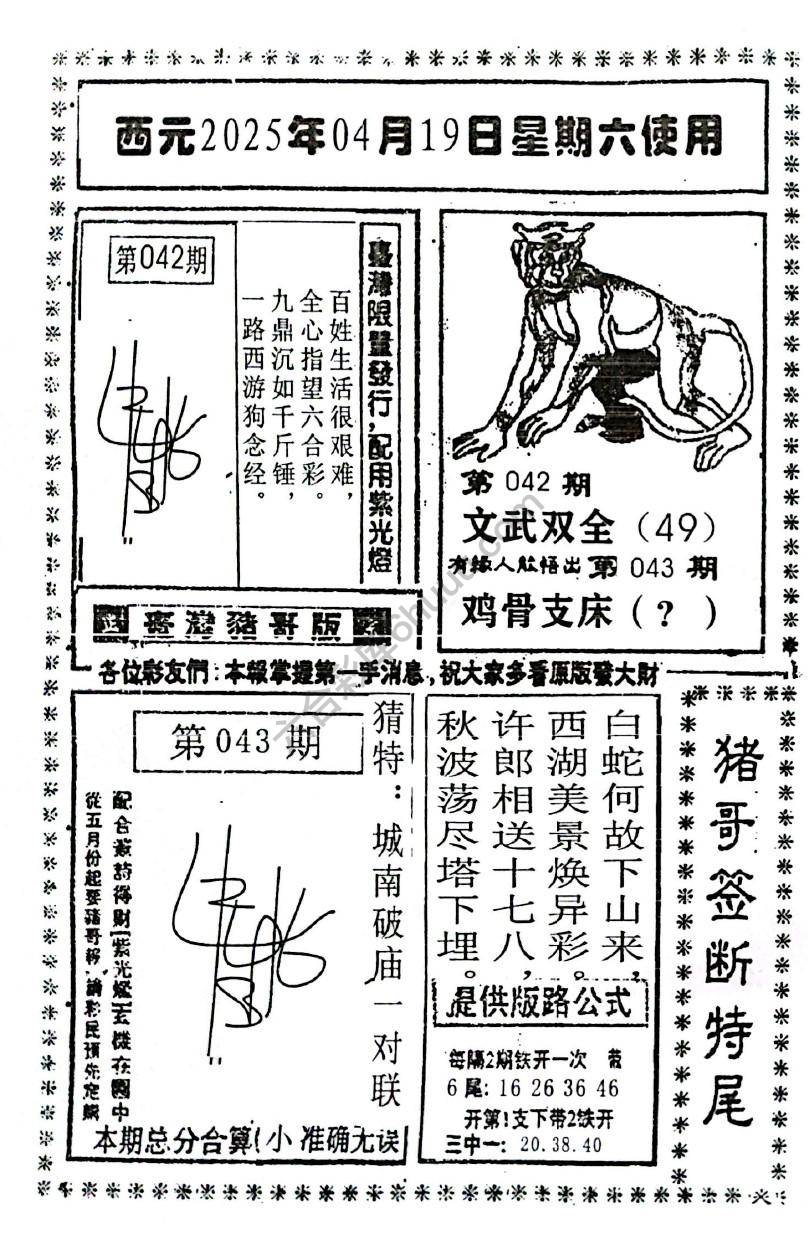 西元2025年04月19日星期六使用
第042期
百姓生活很艰难，
全心指望六合彩。
九鼎沉如千斤锤，
一路西游狗念经。
臺灣限量發行，配用紫光燈
第 042 期
文武双全（49）
有緣人敁悟出 第 043 期
鸡骨支床（？）
臺灣豬哥版
各位彩友們：本報掌握第一手消息，祝大家多看原版發大財
第 043 期
猜特：城南破庙一对联
從五月份起要豬哥報
請彩民預先定購
本期总分合算(小 准确无误
白蛇何故下山来，
西湖美景焕异彩。
许郎相送十七八，
秋波荡尽塔下埋。
提供版路公式
每隔2期铁开一次 带
6尾：16 26 36 46
开第1支下带2铁开
三中一：20.38.40
猪哥签断特尾
六合彩库6huut.com